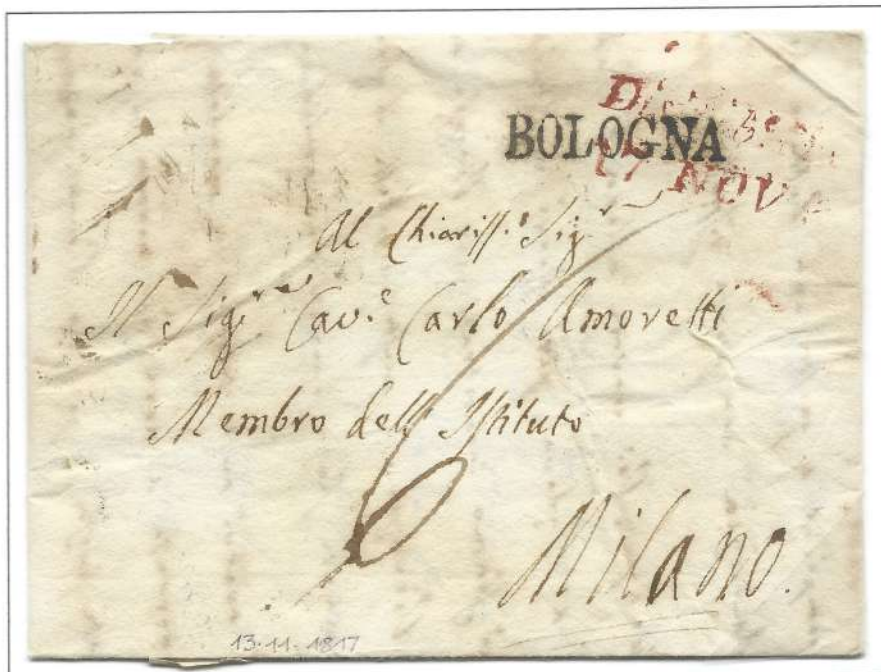 BOLOGNA
17 NOV
Al Chiariss.º Sig.r
Il Sig.r Cav.e Carlo Amoretti
Membro dell'Istituto
6
Milano.
13-11-1817